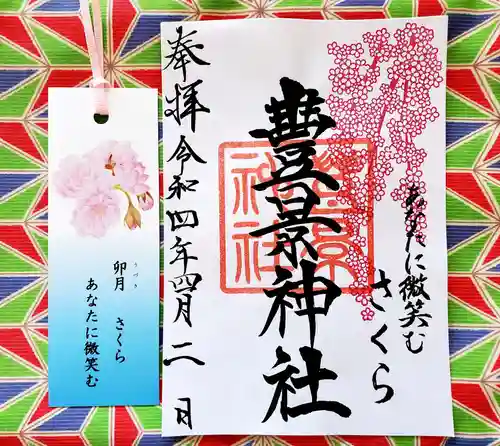 さくら
あなたに微笑む
豊景神社
奉拝 令和四年四月二日
豊景神社
卯月 さくら
うづき
あなたに微笑む